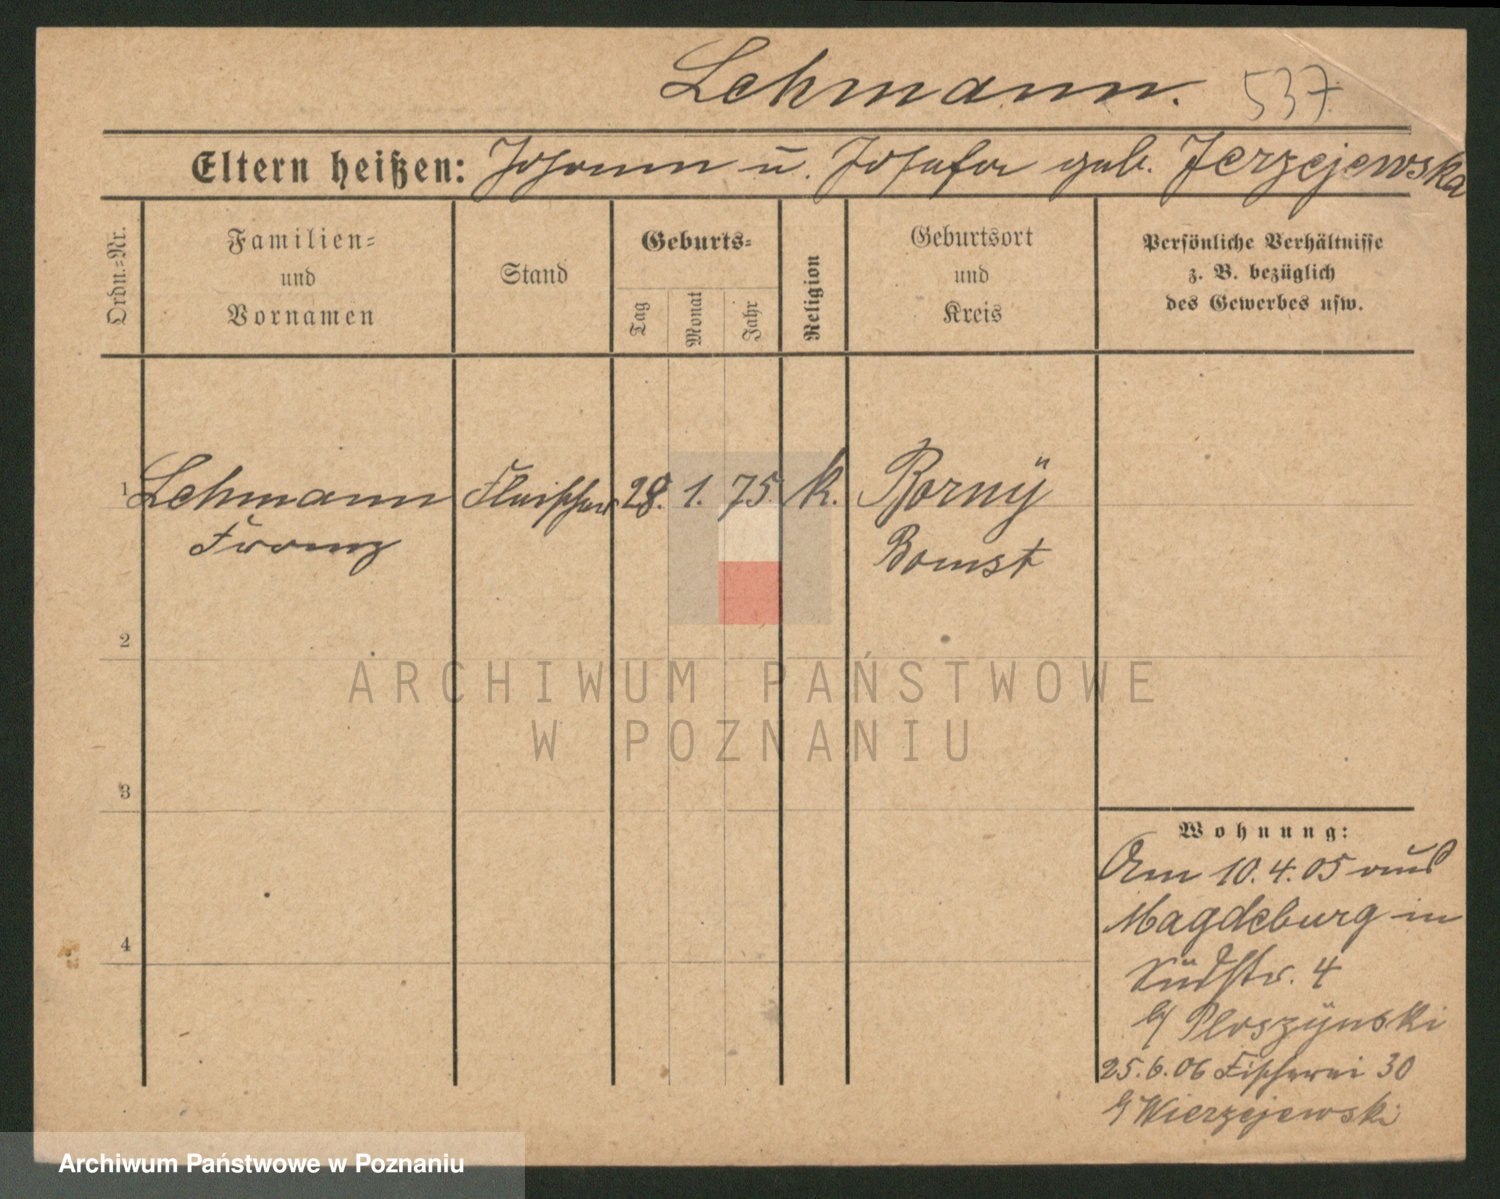 Lehmann. 537
Eltern heißen: Johann u. Josefa geb. Jerzejewska
Ordn.=Nr.
Familien=
und
Vornamen
Stand
Geburts=
Tag
Monat
Jahr
Religion
Geburtsort
und
Kreis
Persönliche Verhältnisse
z. B. bezüglich
des Gewerbes usw.
1 Lehmann Fleischer 28. 1. 75. k. Borny
Franz Bomst
2
3
4
Wohnung:
Am 10.4.05 aus
Magdeburg in
Südstr. 4
b/ Ploszynski
25.6.06 Fischerei 30
b/ Wierzejewski
ARCHIWUM PAŃSTWOWE
W POZNANIU
Archiwum Państwowe w Poznaniu